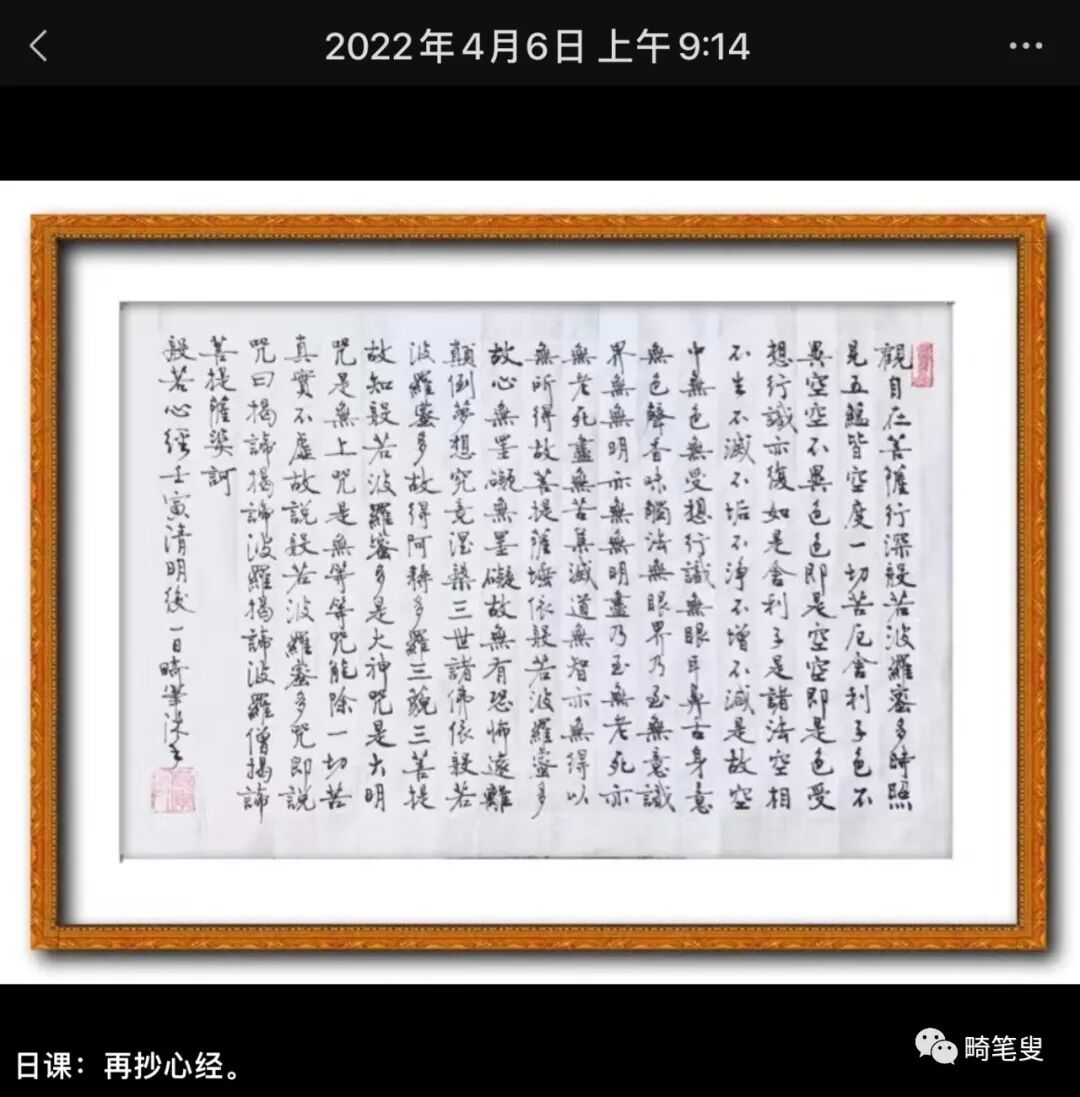 2022年4月6日 上午9:14
觀自在菩薩行深般若波羅蜜多時照
見五蘊皆空度一切苦厄舍利子色不
異空空不異色色即是空空即是色受
想行識亦復如是舍利子是諸法空相
不生不滅不垢不淨不增不減是故空
中無色無受想行識無眼耳鼻舌身意
無色聲香味觸法無眼界乃至無意識
界無無明亦無無明盡乃至無老死亦
無老死盡無苦集滅道無智亦無得以
無所得故菩提薩埵依般若波羅蜜多
故心無罣礙無罣礙故無有恐怖遠離
顛倒夢想究竟涅槃三世諸佛依般若
波羅蜜多故得阿耨多羅三藐三菩提
故知般若波羅蜜多是大神咒是大明
咒是無上咒是無等等咒能除一切苦
真實不虛故說般若波羅蜜多咒即說
咒曰揭諦揭諦波羅揭諦波羅僧揭諦
菩提薩婆訶
般若心經壬寅清明後一日畸筆沐手
日课：再抄心经。
畸笔叟